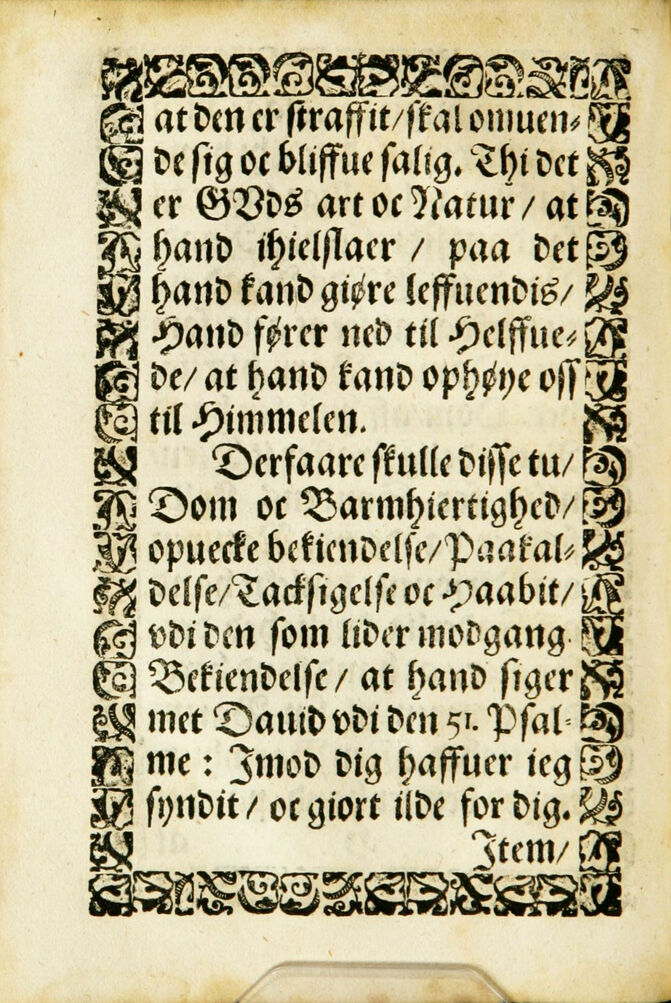 at den er straffit/skal omuen-
de sig oc bliffue salig. Thi det
er GVds art oc Natur / at
hand ihielslaer / paa det
hand kand giøre leffuendis/
Hand fører ned til Helffue-
de/ at hand kand ophøye oss
til Himmelen.
Derfaare skulle disse tu/
Dom oc Barmhiertighed/
opuecke bekiendelse/Paakal-
delse/Tacksigelse oc Haabit/
vdi den som lider modgang.
Bekiendelse / at hand siger
met Dauid vdi den 51. Psal-
me : Imod dig haffuer ieg
syndit / oc giort ilde for dig.
Item/